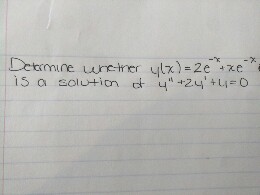 Determine whether y(x) = 2e^-x + xe^-x
is a solution of y" + 2y' + y = 0